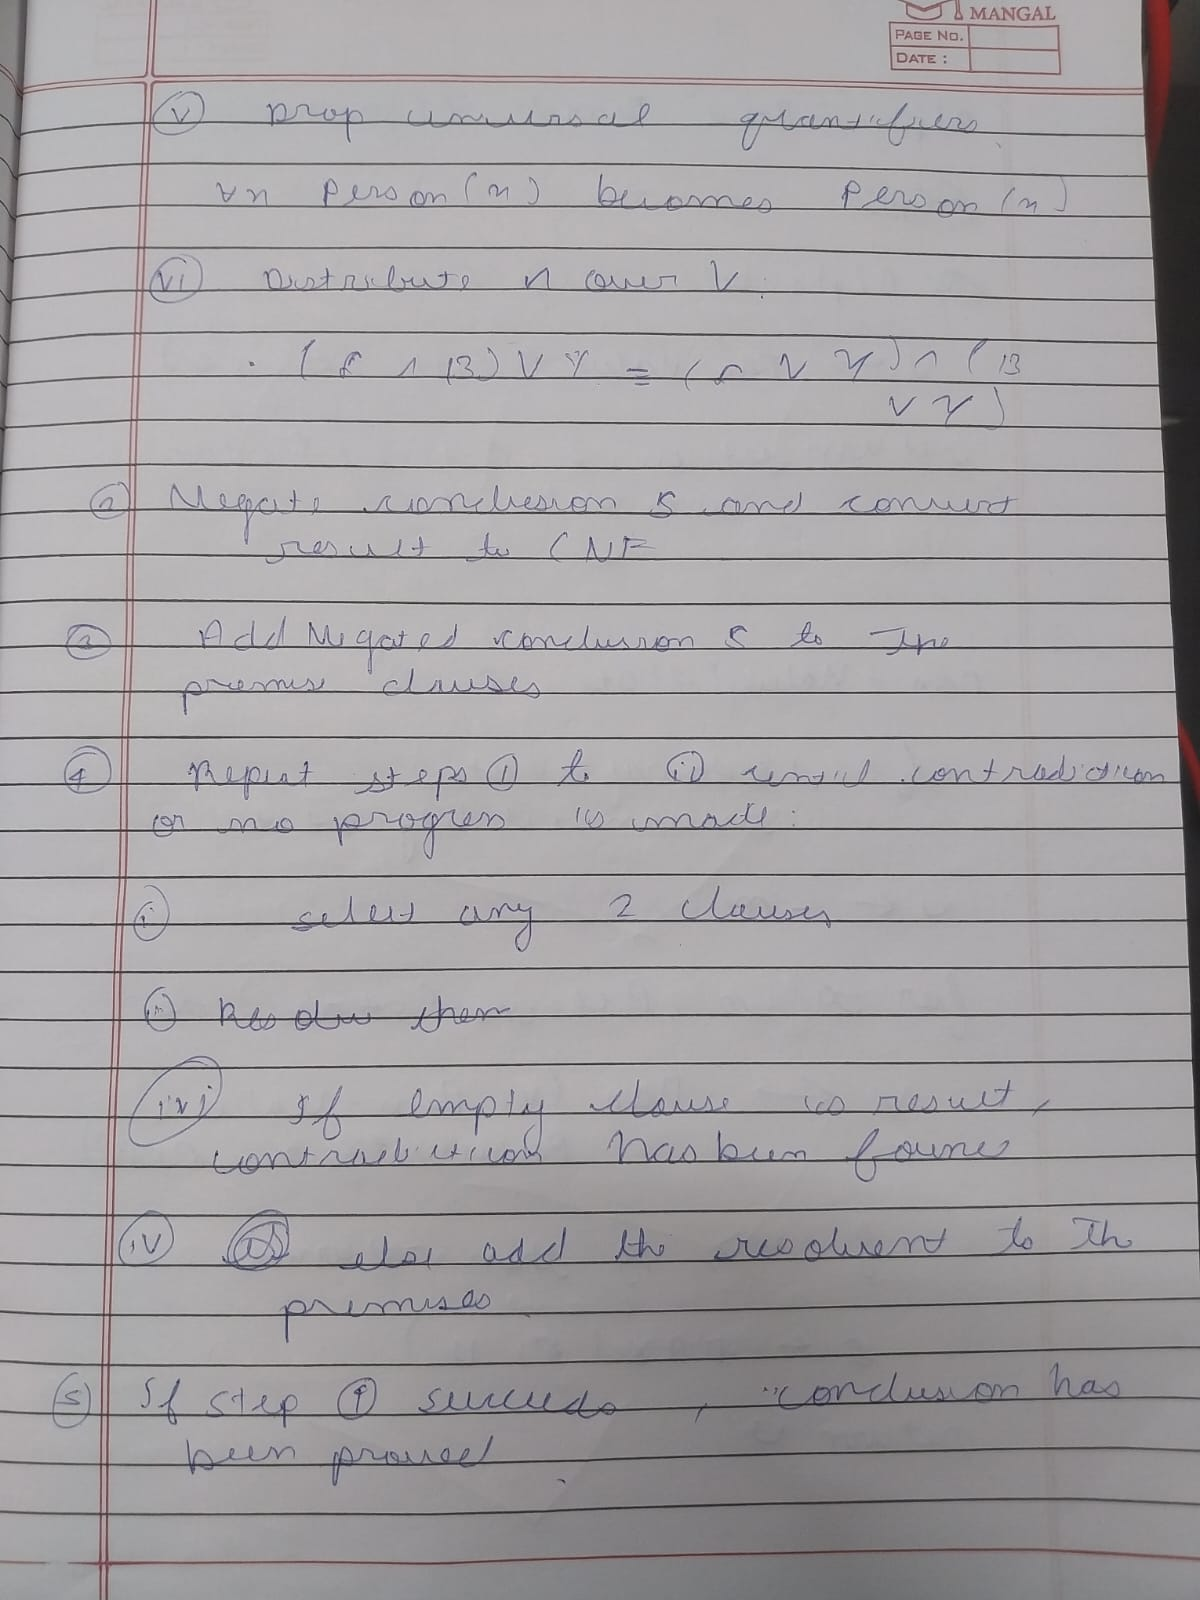 MANGAL
PAGE No.
DATE :
(v) Drop universal quantifiers
∀x Person(x) becomes Person(x)
(vi) Distribute ∧ over ∨.
∧ B) ∨ γ = ( ∨ γ) ∧ (B
∨ γ)
(2) Negate conclusion S and convert
result to CNF
(3) Add Negated conclusion S to The
premise clauses
(4) Repeat steps (i) to until contradiction
or no progress is made:
(i) select any 2 clauses
(ii) Resolve them
If empty clause is result,
contradiction has been found
(iv) else add the resolvent to The
premises
(5) If step succeeds, conclusion has
been proved